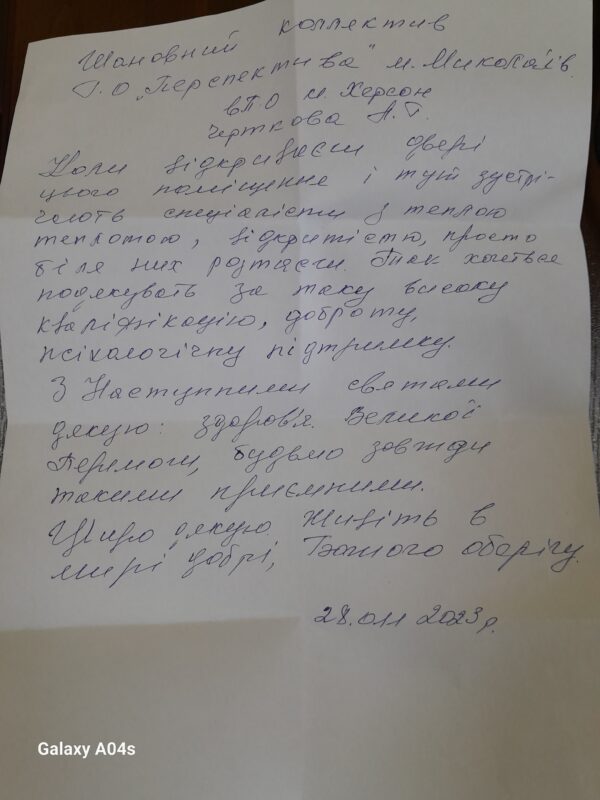 Шановний коллектив
Г.О „Перспектива" м. Миколаїв.
ВПО м. Херсон
Черткова Л.Г.
Коли відкриваєш двері
цього поміщення і тут зустрі-
чають спеціалісти з теплою
теплотою, відкритістю, просто
біля них розтаєш. Так хочеться
подякувать за таку високу
кваліфікацію, доброту,
психологічну підтримку.
З Наступними святами
дякую: здоров'я. Великої
Перемоги, будьмо завжди
такими приємними.
Щиро дякую Живіть в
мирі добрі, Божого оберігу.
28. 2023 р.
Galaxy A04s